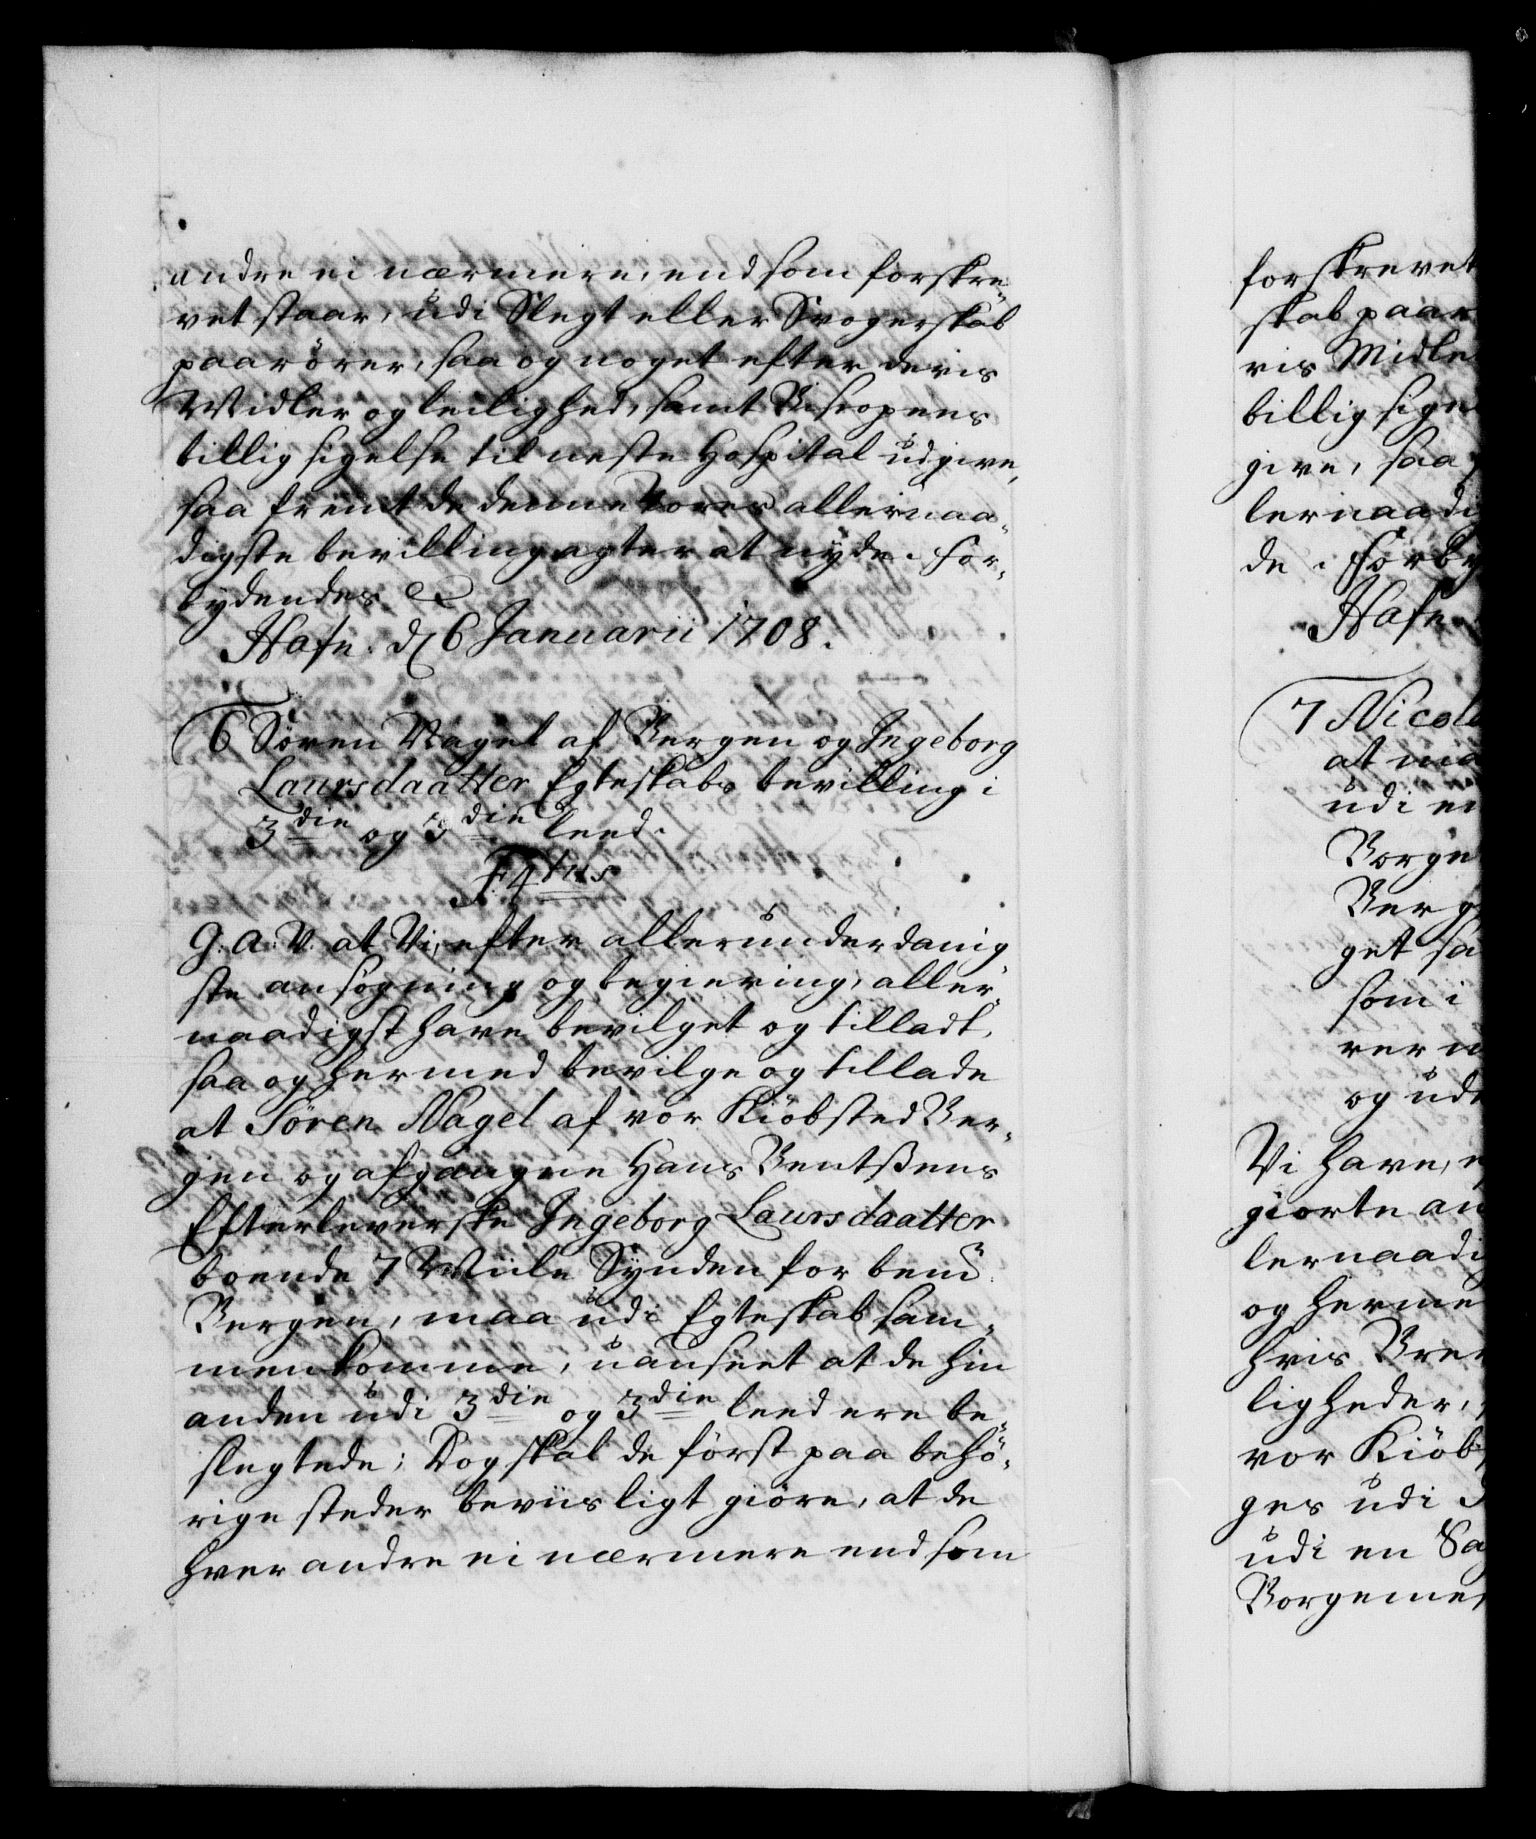 andre ei nærmere, end som forskre-
vet staar, udi Slegt eller Svogerskab
paarörer, saa og noget efter deris
Midler og leilighed, samt Biscopens
billig sigelse til neste Hospital udgive,
saa fremt de denne Vores allernaa-
digste bevilling agter at nyde. For-
bydendes &
Hafn. d 6 Januarii 1708.
6 Sören Nagel af Bergen og Ingeborg
Laursdaatter Egteskabs bevilling i
3die og 3die leed.
F. 4tus
G. A. V. at Vi, efter allerunderdanig
ste ansögning og begiering, aller-
naadigst have bevilget og tilladt,
saa og hermed bevilge og tillade
at Sören Nagel af vor Kiöbsted Ber-
gen og afgangne Hans Bentßens
Efterleverske Ingeborg Laursdaatter
boende 7 Miile Synden for bemt
Bergen, maa udi Egteskab sam-
menkomme, uanseet at de hin
anden udi 3die og 3die leed ere be-
slegtede; Dog skal de först paa behö-
rige steder beviisligt giöre, at de
hver andre ei nærmere end som
forskrevet
skab paar
ris Midle
billig sige
give, saa
lernaadi
de. Forby
Hafn.
7 Nicol
at ma
udi en
Borge
Berg
get sa
som i
ver n
og udi
Vi have, e
giorte an
lernaadi
og herme
hvis Bre
ligheder,
vor Kiöb
ges udi
udi en Sa
Borgemes